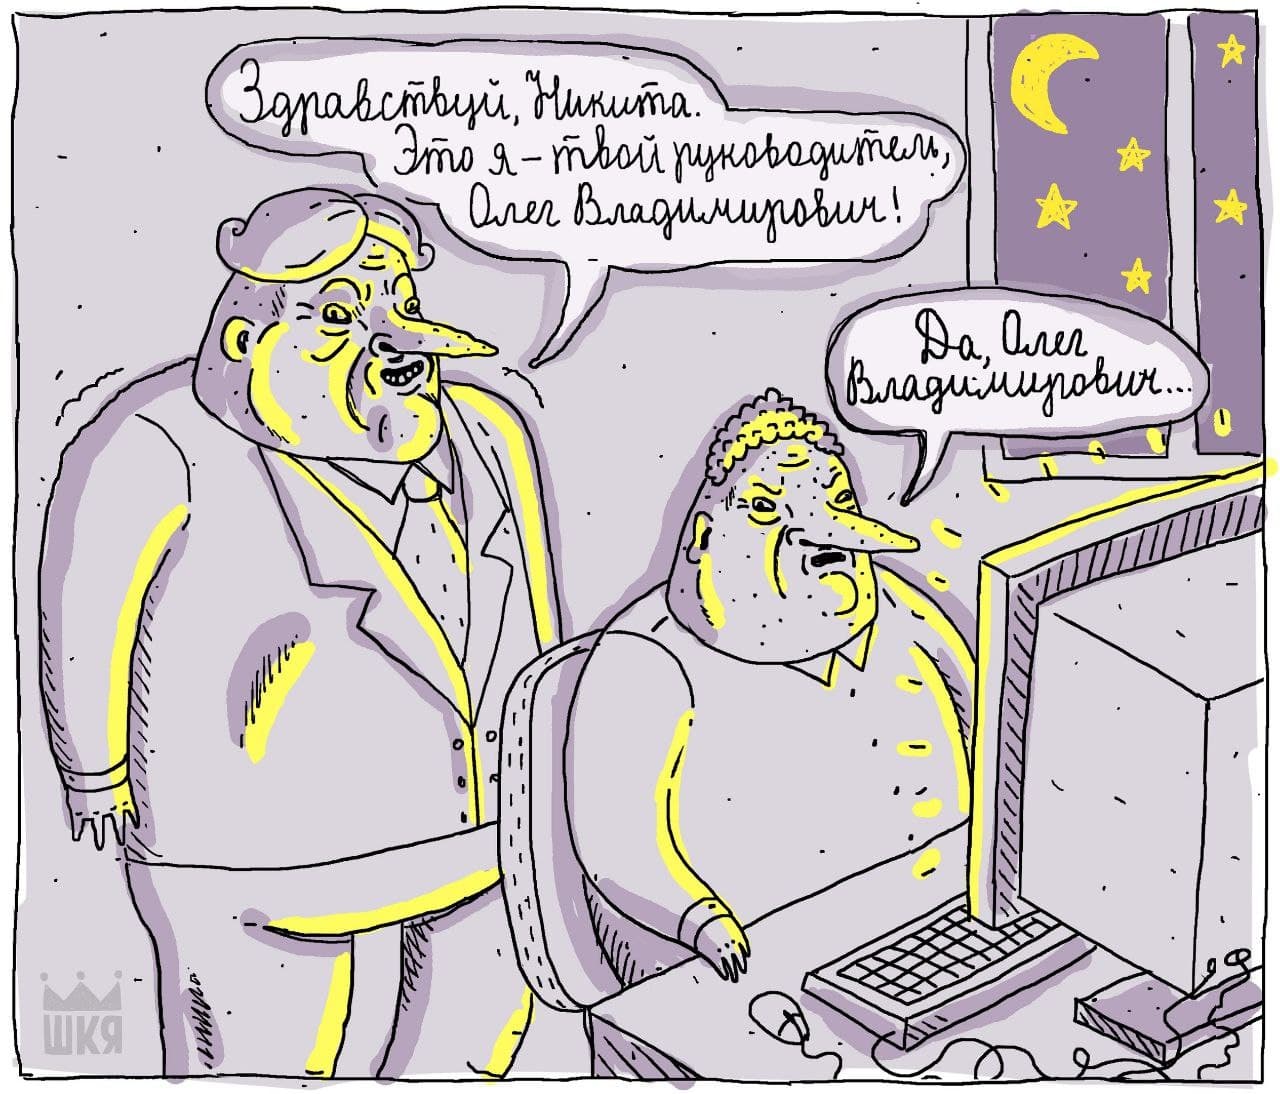 Здравствуй, Никита.
Это я – твой руководитель,
Олег Владимирович!
Да, Олег
Владимирович...
ШКЯ